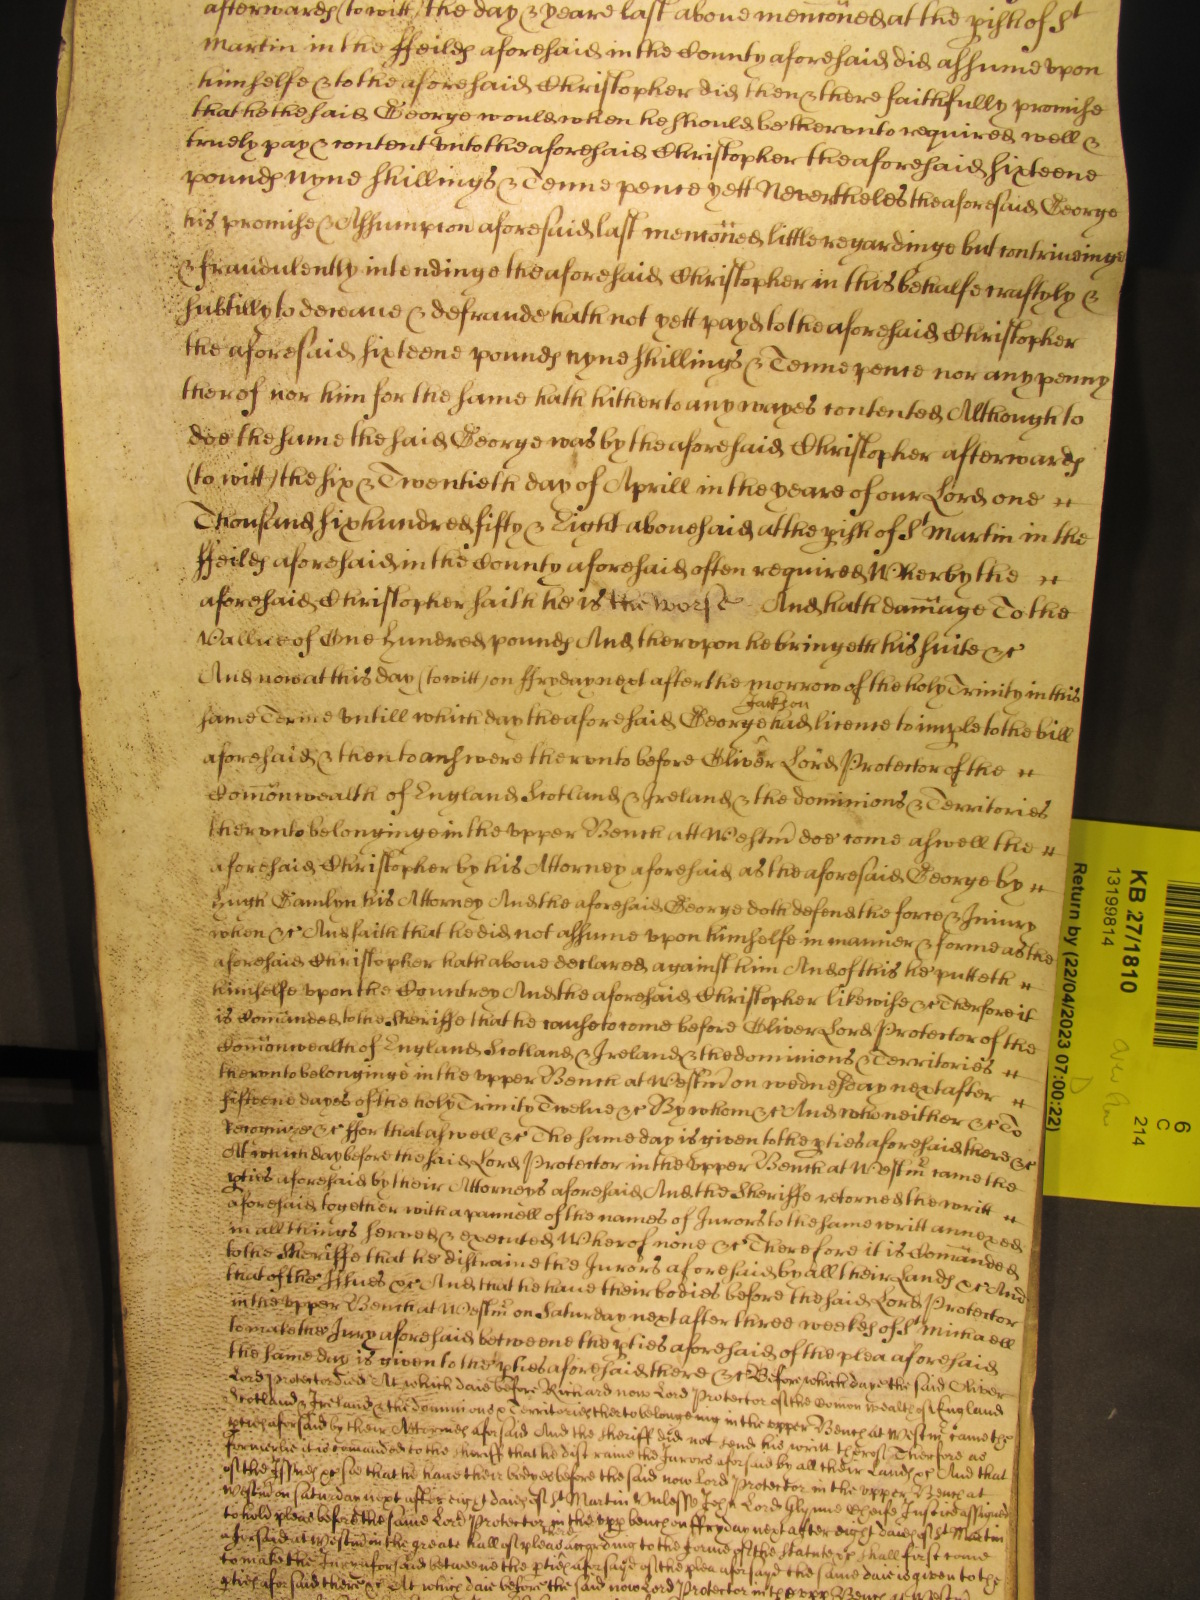 afterwards (to witt) the day & yeare last above menc̄oned at the pish of St
Martin in the ffeilds aforesaid in the County aforesaid did assume upon
himselfe & to the aforesaid Christopher did then & there faithfully promise
that he the said George would when he should be therunto required well &
truely pay & content unto the aforesaid Christopher the aforesaid sixteene
pounds nyne shillings & Tenne pence yett Nevertheles the aforesaid George
his promise & Assumpcon aforesaid last menc̄oned little regardinge but contriveinge
& fraudulently intendinge the aforesaid Christopher in this behalfe craftyly &
subtilly to deceave & defraude hath not yett payd to the aforesaid Christopher
the aforesaid sixteene pounds nyne shillings & Tenne pence nor any penny
therof nor him for the same hath hitherto any wayes contented Although to
doe the same the said George was by the aforesaid Christopher afterwards
(to witt) the six & Twentieth day of Aprill in the yeare of our Lord one
Thousand six hundred fifty & Eight abovesaid at the pish of St Martin in the
ffeilds aforesaid in the County aforesaid often required Wherby the
aforesaid Christopher saith he is the worse And hath dam̄age To the
vallue of One hundred pounds And therupon he bringeth his suite &c
And now at this day (to witt) on ffryday next after the morrow of the holy Trinity in this
same Terme untill which day the aforesaid George Jackson had licence to imple to the bill
aforesaid & then to answere therunto before Oliver Lord Protector of the
Com̄onwealth of England Scotland & Ireland & the dominions & Territories
therunto belonginge in the upper Bench att Westm̄ doe come aswell the
aforesaid Christopher by his Attorney aforesaid as the aforesaid George by
Hugh Hamlyn his Attorney And the aforesaid George doth defend the force & Iniury
when &c And saith that he did not assume upon himselfe in manner & forme as the
aforesaid Christopher hath above declared against him And of this he putteth
himselfe upon the Countrey And the aforesaid Christopher likewise &c Therfore it
is Com̄anded to the Sheriffe that he cause to come before Oliver Lord Protector of the
Com̄onwealth of England Scotland & Ireland & the dominions & Territories
therunto belonginge in the upper Bench at Westm̄ on wednesday next after
fifteene dayes of the holy Trinity Twelve &c By whom &c And who neither &c To
Recognize &c ffor that aswell &c The same day is given to the pties aforesaid there &c
At which day before the said Lord Protector in the upper Bench at Westm̄ came the
pties aforesaid by their Attorneys aforesaid And the Sheriffe retorned the writt
aforesaid together with a pannell of the names of Jurors to the same writt annexed
in all things served & executed Wherof none &c Therefore it is Com̄anded
to the Sheriffe that he distraine the Jurors aforesaid by all their Lands &c And
that of the Issues &c And that he have their bodies before the said Lord Protector
in the upper Bench at Westm̄ on Saturday next after three weekes of St Michaell
to make the Jury aforesaid betweene the pties aforesaid of the plea aforesaid
the same day is given to the pties aforesaid there &c Before which daye the said Oliver
Lord Protector died At which daie before Richard now Lord Protector of the Comon wealth of England
Scotland & Ireland & the dominions & Territories therto belongeing in the upper Bench at Westm̄ came the
pties aforsaid by their Attorneys aforsaid And the Sheriff did not send his writt therof Therefore as
formerlie it is comanded to the Sheriff that he distraine the Jurors aforsaid by all their Lands &c And that
of the Issues &c soe that he have their bodyes before the said now Lord Protector in the upper Bench at
Westm̄ on saturday next after eight daies of St Martin Unlesse John Lord Glynne Cheife Justice assigned
to hold pleas before the same Lord Protector in the upp bench on ffryday next after eight daies of St Martin
aforsaid at Westm̄ in the greate hall of pleas there according to the forme of the Statute &c shall first come
to make the Jury aforsaid betweene the pties aforsayd of the plea aforsayd the same daie is given to the
pties aforsaid there &c At which daie before the said now Lord Protector in the upp Bench at Westm̄
KB 27/1810
13199814
Return by (22/04/2023 07:00:22)
6
C
214